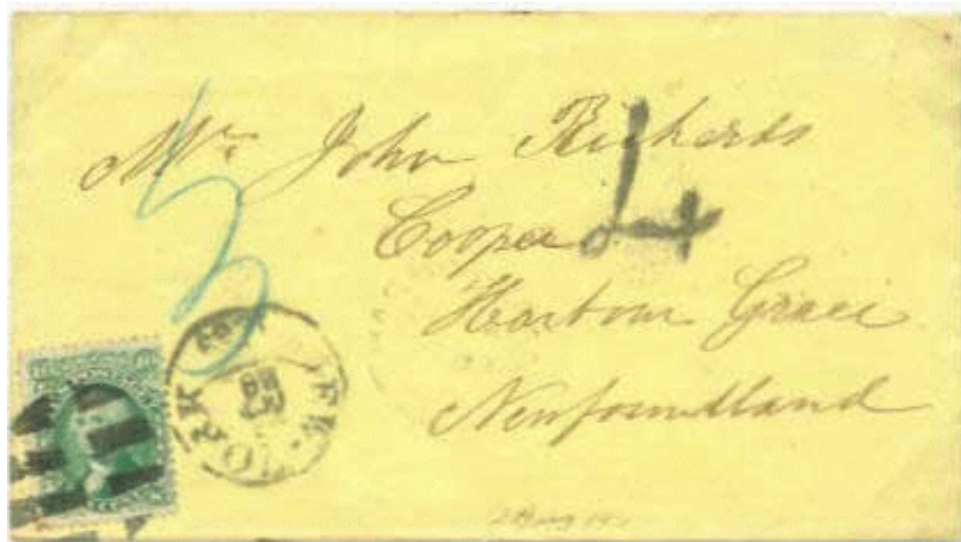 Mr. John Richards
Cooper
4
Harbour Grace
Newfoundland
3
NEW YORK